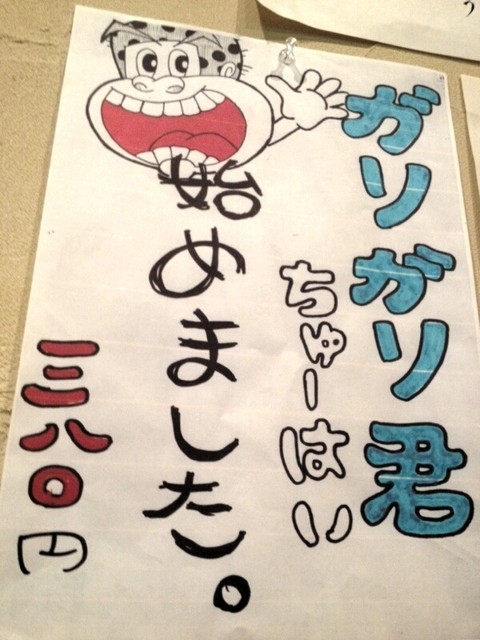 ガリガリ君
ちゅーはい
始めました。
三八〇円